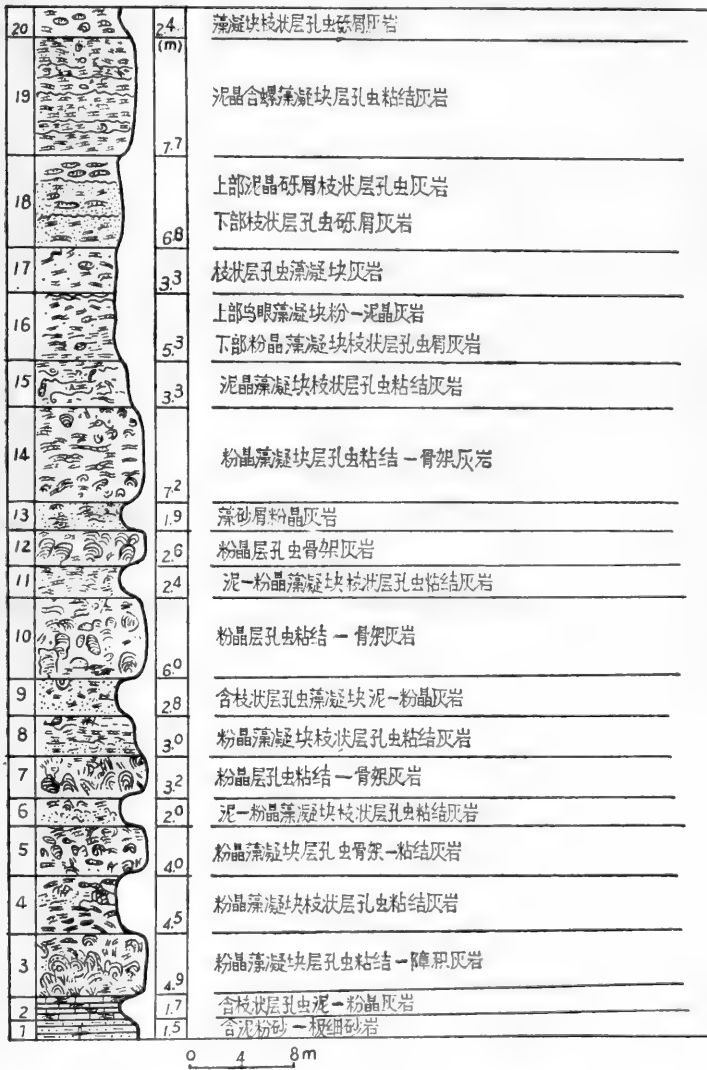 20 2.4 藻凝块枝状孔虫砾屑灰岩
(m)
19 7.7 泥晶含螺藻凝块层孔虫粘结灰岩
18 6.8 上部泥晶砾屑枝状层孔虫灰岩
下部枝状层孔虫砾屑灰岩
17 3.3 枝状层孔虫藻凝块灰岩
16 5.3 上部鸟眼藻凝块粉—泥晶灰岩
下部粉晶藻凝块枝状层孔虫屑灰岩
15 3.3 泥晶藻凝块枝状层孔虫粘结灰岩
14 7.2 粉晶藻凝块层孔虫粘结—骨架灰岩
13 1.9 藻砂屑粉晶灰岩
12 2.6 粉晶层孔虫骨架灰岩
11 2.4 泥—粉晶藻凝块枝状层孔虫粘结灰岩
10 6.0 粉晶层孔虫粘结—骨架灰岩
9 2.8 含枝状层孔虫藻凝块泥—粉晶灰岩
8 3.0 粉晶藻凝块枝状层孔虫粘结灰岩
7 3.2 粉晶层孔虫粘结—骨架灰岩
6 2.0 泥—粉晶藻凝块枝状层孔虫粘结灰岩
5 4.0 粉晶藻凝块层孔虫骨架—粘结灰岩
4 4.5 粉晶藻凝块枝状层孔虫粘结灰岩
3 4.9 粉晶藻凝块层孔虫粘结—障积灰岩
2 1.7 含枝状层孔虫泥—粉晶灰岩
1 1.5 含泥粉砂—极细砂岩
0 4 8m